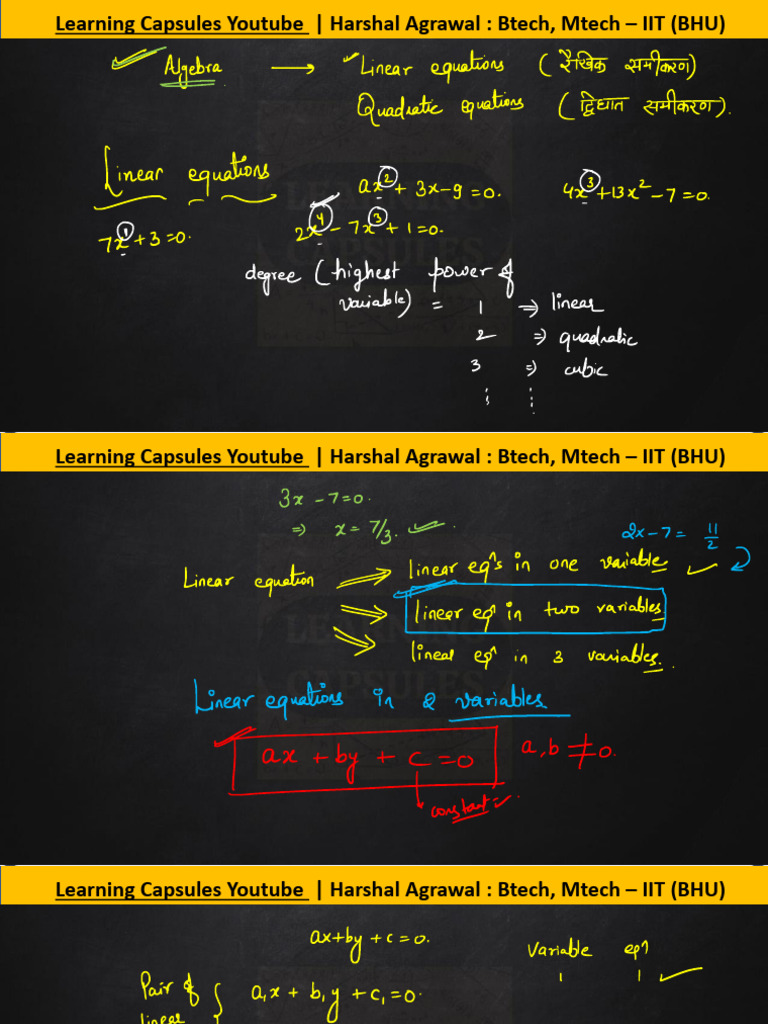 Learning Capsules Youtube | Harshal Agrawal : Btech, Mtech – IIT (BHU)
Algebra → Linear equations (रैखिक समीकरण)
Quadratic equations (द्विघात समीकरण).
Linear equations
ax² + 3x – 9 = 0.
4x³ + 13x² – 7 = 0.
7x¹ + 3 = 0.
2x⁴ – 7x³ + 1 = 0.
degree (highest power of
variable) = 1 ⇒ linear
2 ⇒ quadratic
3 ⇒ cubic
⋮ ⋮
LEARNING
CAPSULES
Learning Capsules Youtube | Harshal Agrawal : Btech, Mtech – IIT (BHU)
3x – 7 = 0.
⇒ x = 7/3.
2x – 7 = 11/2
Linear equation ⇒ linear eqⁿs in one variable
⇒ linear eqⁿ in two variables
⇒ linear eqⁿ in 3 variables.
LEARNING
CAPSULES
Linear equations in 2 variables
ax + by + c = 0 a, b ≠ 0.
constant
Learning Capsules Youtube | Harshal Agrawal : Btech, Mtech – IIT (BHU)
ax + by + c = 0.
Variable eqⁿ
1 1
Pair of { a₁x + b₁y + c₁ = 0.
linear